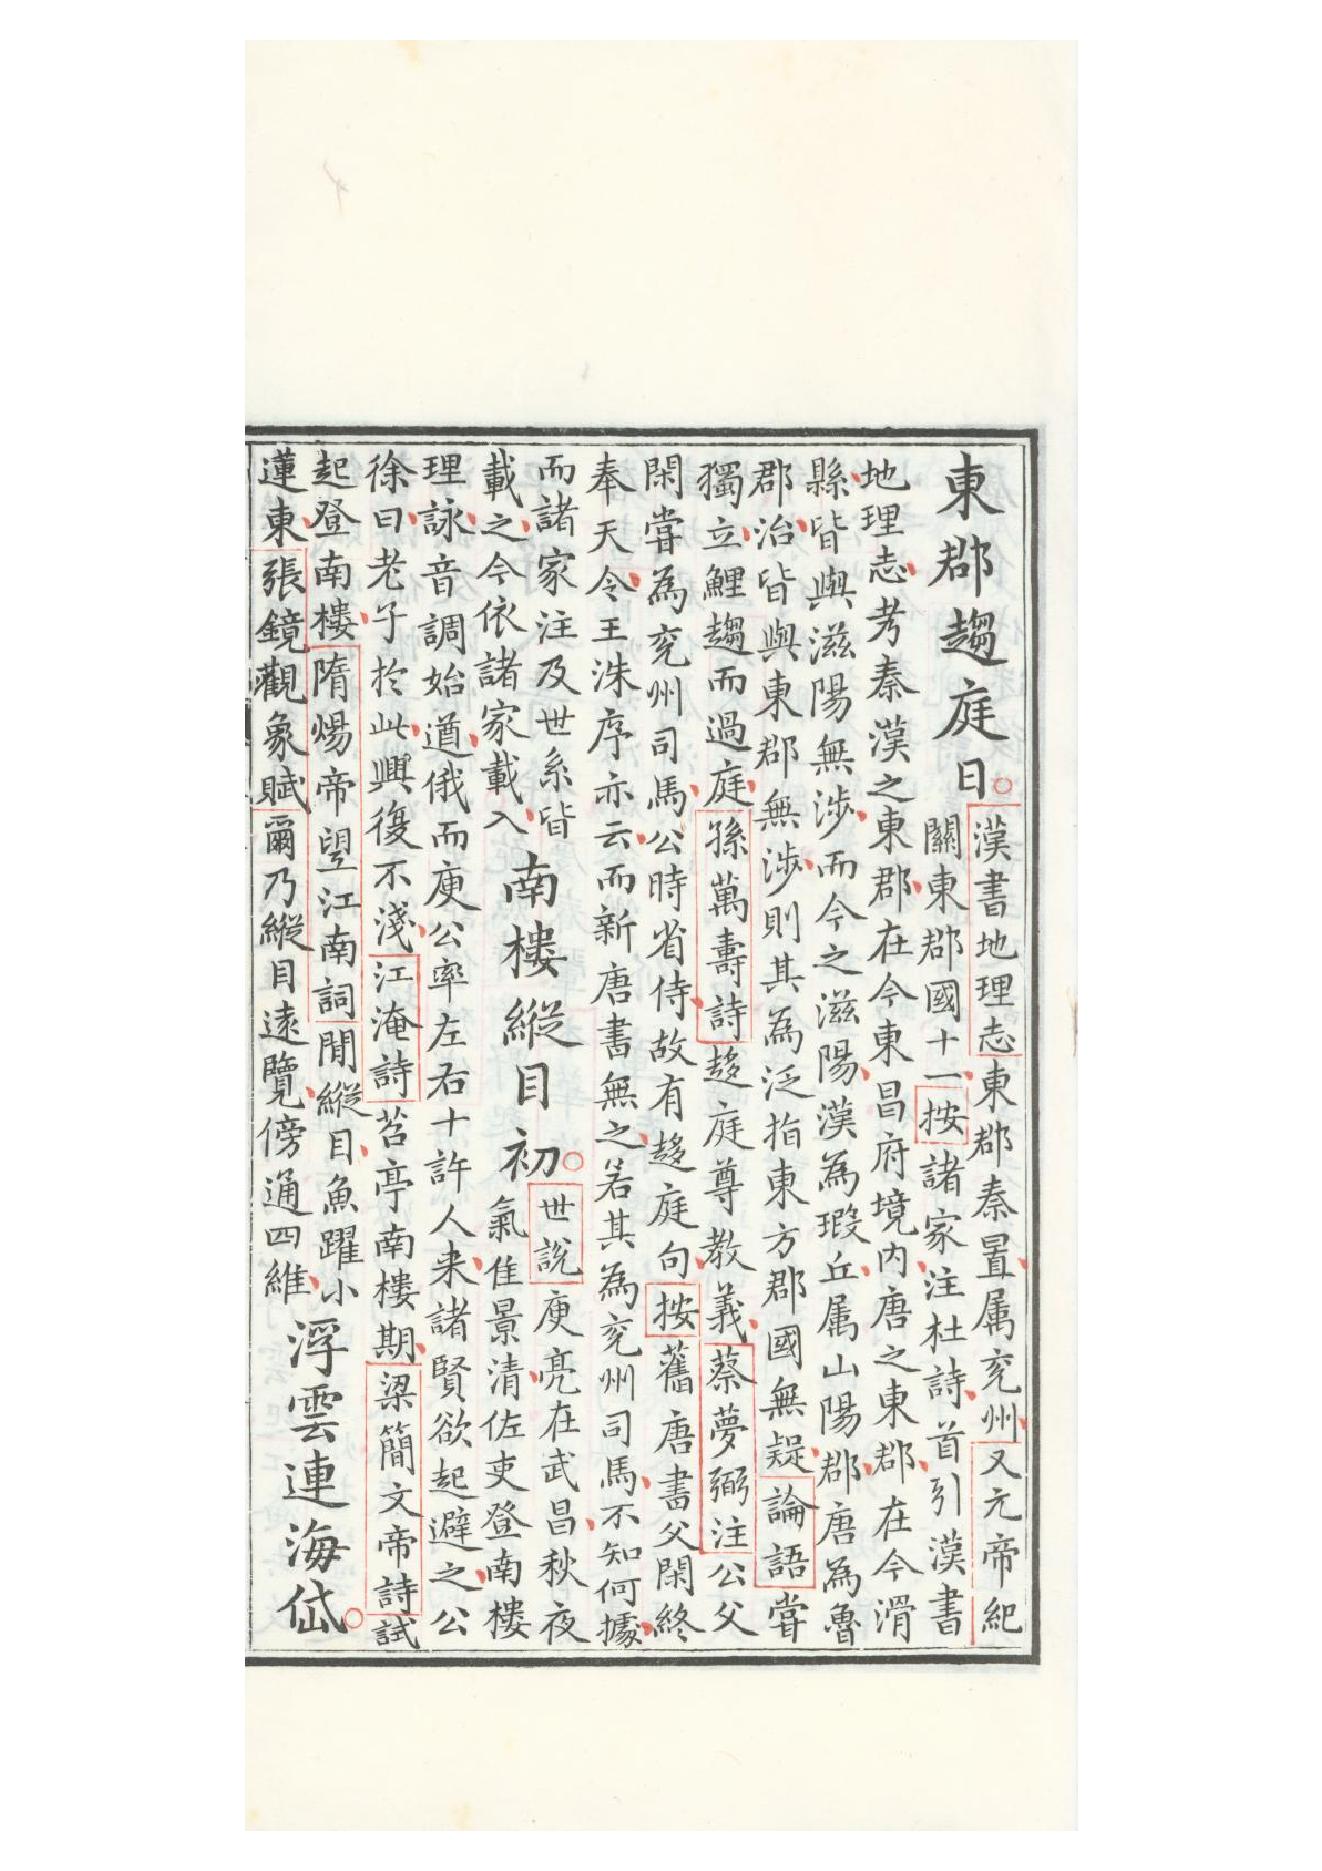 東郡趨庭日
漢書地理志東郡秦置属兖州又元帝紀
關東郡國十一按諸家注杜詩首引漢書
地理志考秦漢之東郡在今東昌府境内唐之東郡在今滑
縣皆與滋陽無涉而今之滋陽漢為瑕丘属山陽郡唐為魯
郡治皆與東郡無涉則其為泛指東方郡國無疑論語嘗
獨立鯉趨而過庭孫萬壽詩趍庭尊教義蔡夢弼注公父
閑嘗為兖州司馬公時省侍故有趍庭句按舊唐書父閑終
奉天令王洙序亦云而新唐書無之若其為兖州司馬不知何據
而諸家注及世系皆
載之今依諸家載入
南樓縱目初
世說庾亮在武昌秋夜
氣佳景清佐吏登南樓
理詠音調始遒俄而庾公率左右十許人来諸賢欲起避之公
徐曰老子於此興復不淺江淹詩苕亭南樓期梁簡文帝詩試
起登南樓隋煬帝望江南詞閒縱目魚躍小
蓮東張鏡觀象賦爾乃縱目遠覽傍通四維
浮雲連海岱